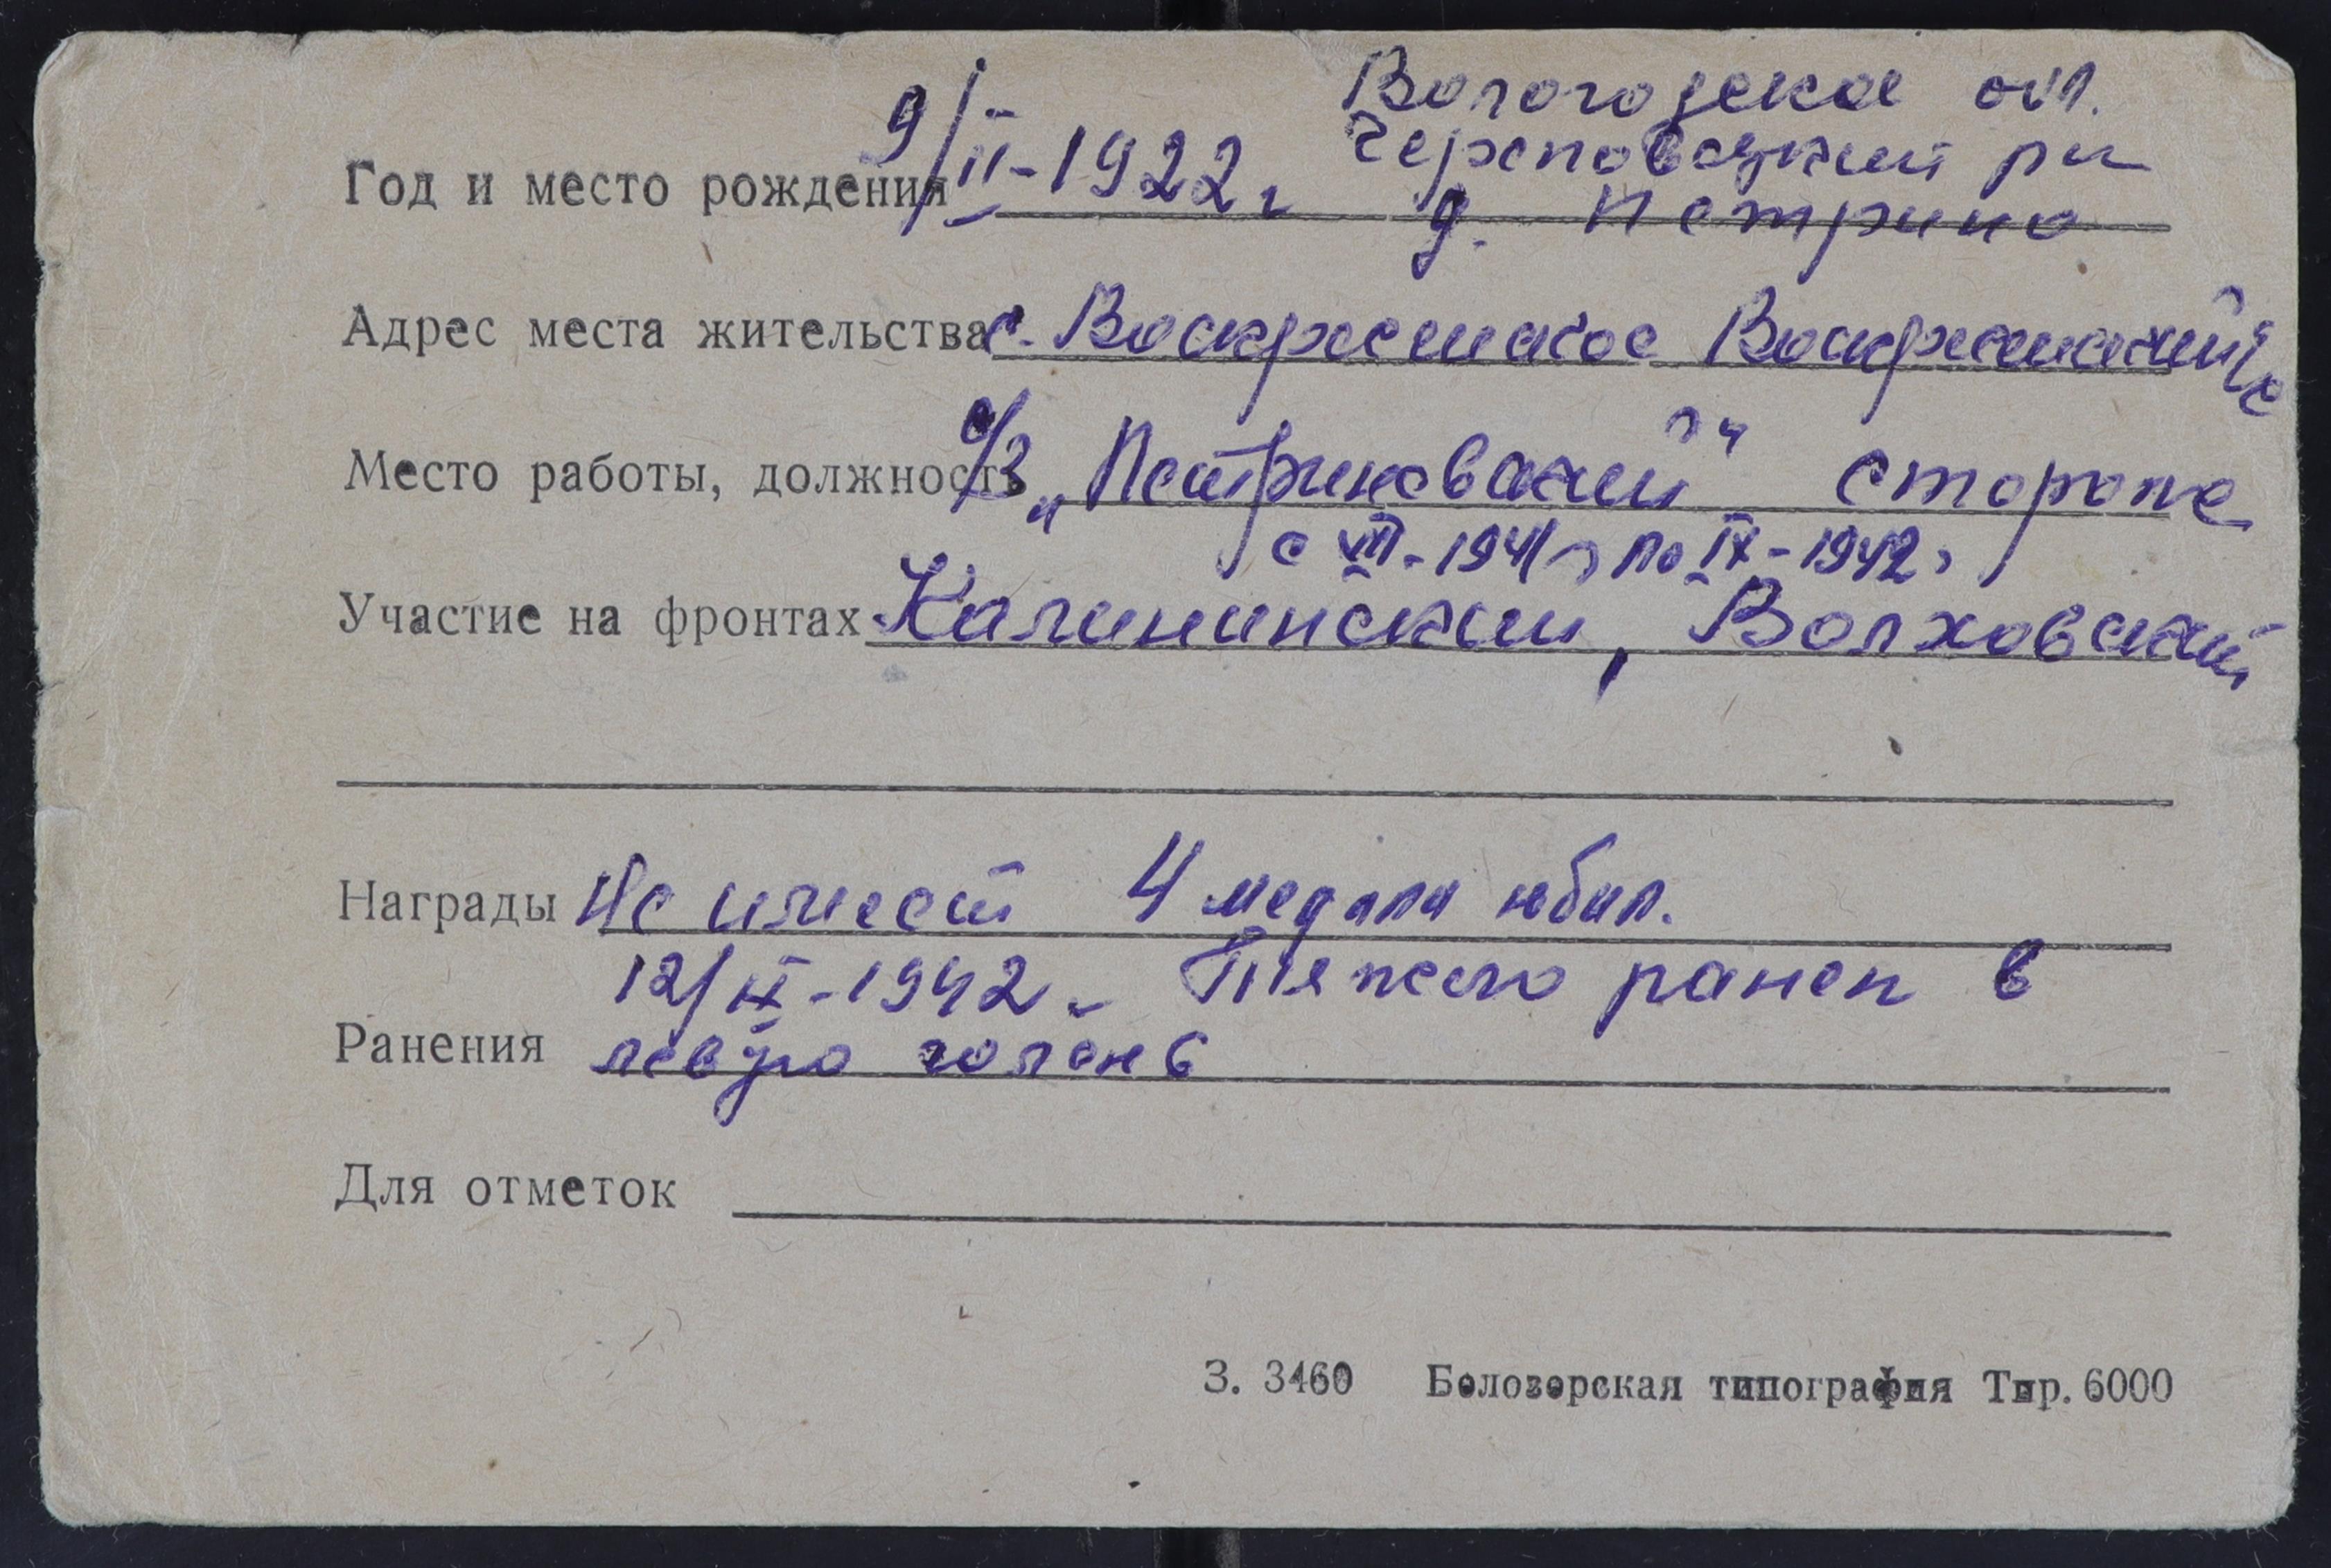 Вологодская обл.
Череповецкий р-н
Год и место рождения 9/II-1922 г д. Петрино
Адрес места жительства с. Воскресенское Воскресенский с/с
Место работы, должность с/з „Петриневский" сторож
с VIII-1941 г по IX-1942 г
Участие на фронтах Калининский, Волховский
Награды Не имеет 4 медали юбил.
12/IX-1942 г Тяжело ранен в
Ранения левую голень
Для отметок
З. 3460 Белозерская типография Тир. 6000